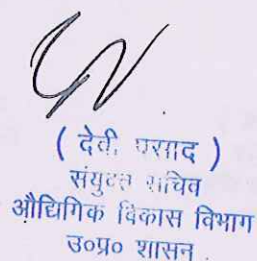 ( देवी प्रसाद )
संयुक्त सचिव
औद्योगिक विकास विभाग
उ०प्र० शासन